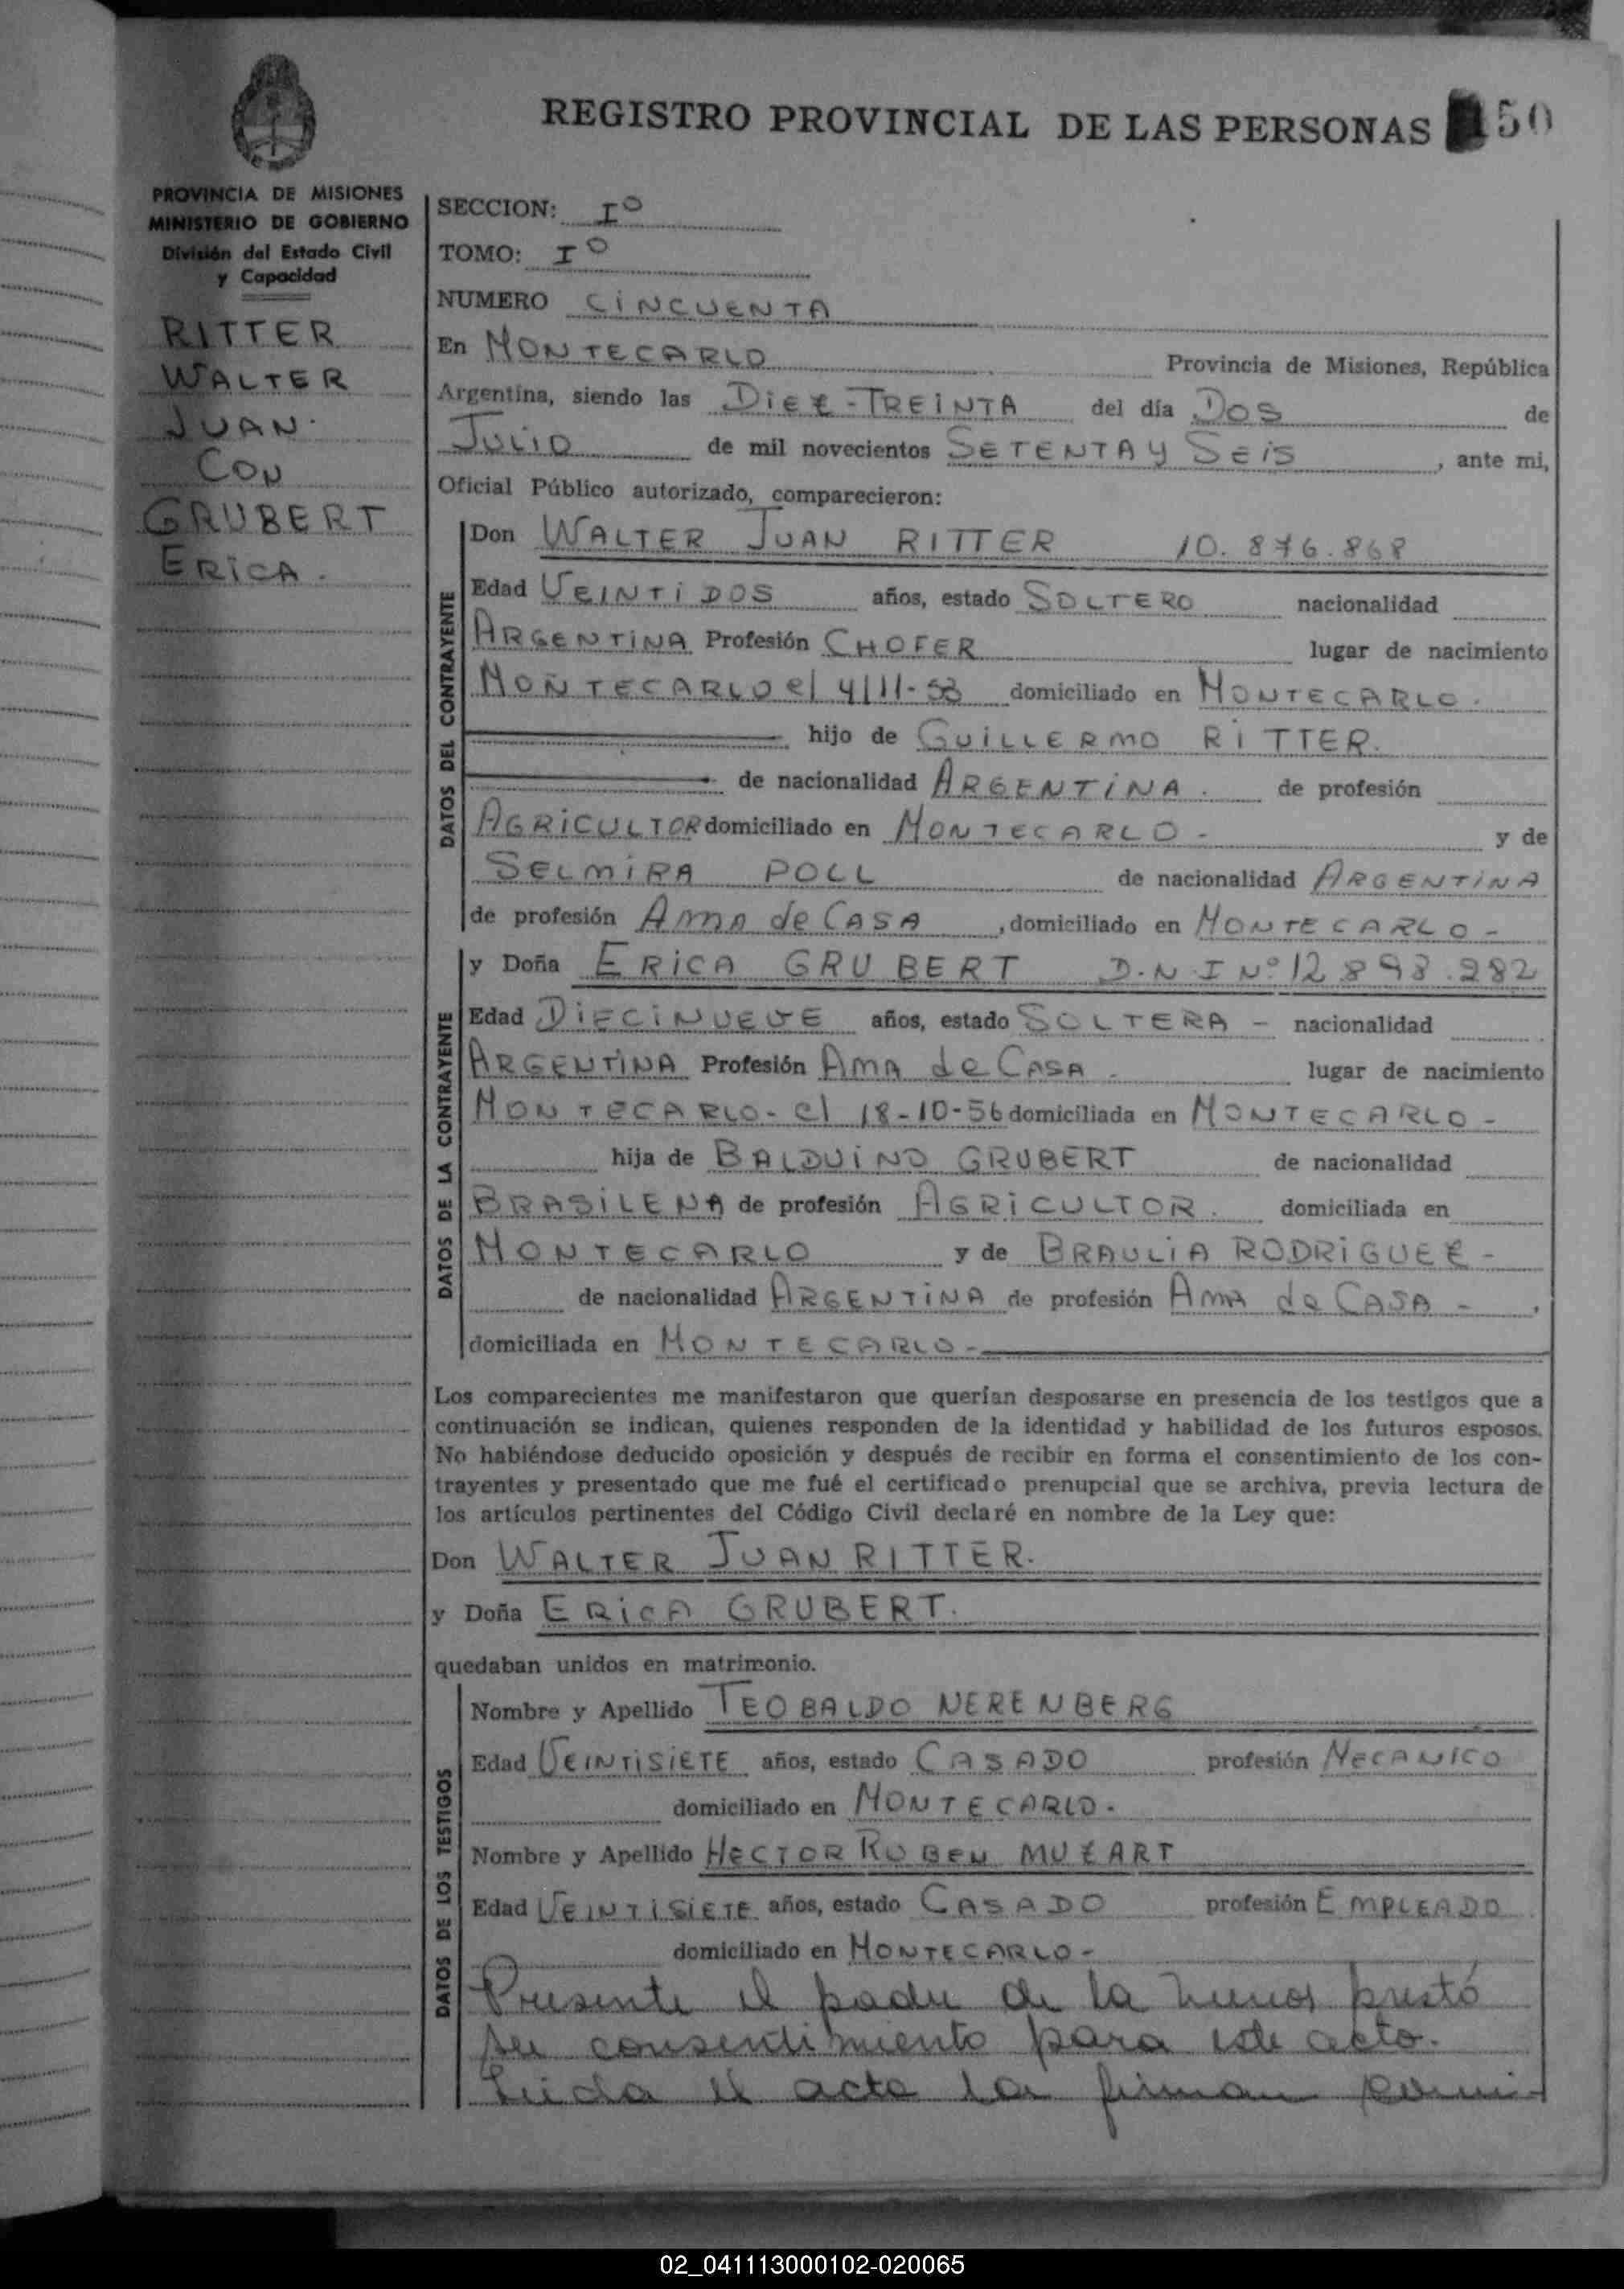 REGISTRO PROVINCIAL DE LAS PERSONAS 50
PROVINCIA DE MISIONES
MINISTERIO DE GOBIERNO
División del Estado Civil
y Capacidad
RITTER
WALTER
JUAN.
CON
GRUBERT
ERICA.
SECCION: Iº
TOMO: Iº
NUMERO CINCUENTA
En MONTECARLO Provincia de Misiones, República
Argentina, siendo las DIEZ-TREINTA del día DOS de
JULIO de mil novecientos SETENTA Y SEIS, ante mi,
Oficial Público autorizado, comparecieron:
DATOS DEL CONTRAYENTE
Don WALTER JUAN RITTER 10.876.868
Edad VEINTIDOS años, estado SOLTERO nacionalidad
ARGENTINA Profesión CHOFER lugar de nacimiento
MONTECARLO el 4/11-53 domiciliado en MONTECARLO.
hijo de GUILLERMO RITTER.
de nacionalidad ARGENTINA. de profesión
AGRICULTOR domiciliado en MONTECARLO- y de
SELMIRA POLL de nacionalidad ARGENTINA
de profesión AMA de CASA, domiciliado en MONTECARLO-
DATOS DE LA CONTRAYENTE
y Doña ERICA GRUBERT D.N I Nº 12 898.282
Edad DIECINUEVE años, estado SOLTERA- nacionalidad
ARGENTINA Profesión AMA de CASA- lugar de nacimiento
MONTECARLO- el 18-10-56 domiciliada en MONTECARLO-
hija de BALDUINO GRUBERT de nacionalidad
BRASILENA de profesión AGRICULTOR. domiciliada en
MONTECARLO y de BRAULIA RODRIGUEZ-
de nacionalidad ARGENTINA de profesión AMA de CASA-,
domiciliada en MONTECARLO-
Los comparecientes me manifestaron que querían desposarse en presencia de los testigos que a
continuación se indican, quienes responden de la identidad y habilidad de los futuros esposos.
No habiéndose deducido oposición y después de recibir en forma el consentimiento de los con-
trayentes y presentado que me fué el certificado prenupcial que se archiva, previa lectura de
los artículos pertinentes del Código Civil declaré en nombre de la Ley que:
Don WALTER JUAN RITTER.
y Doña ERICA GRUBERT.
quedaban unidos en matrimonio.
DATOS DE LOS TESTIGOS
Nombre y Apellido TEOBALDO NERENBERG
Edad VEINTISIETE años, estado CASADO profesión MECANICO
domiciliado en MONTECARLO.
Nombre y Apellido HECTOR RUBEN MUZART
Edad VEINTISIETE años, estado CASADO profesión EMPLEADO
domiciliado en MONTECARLO-
Presente el padre de la menor prestó
su consentimiento para este acto.
Leida el acta la firman
02_041113000102-020065